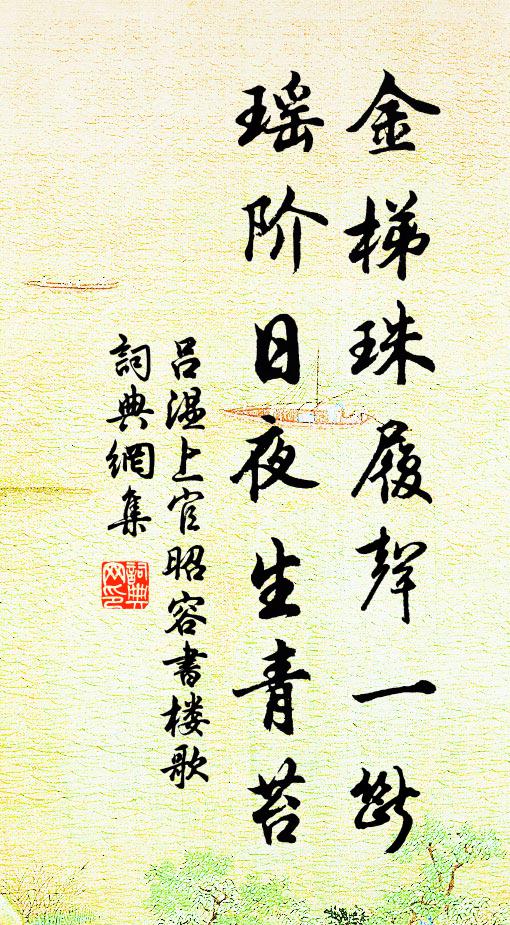 金梯珠履聲一斷
瑶阶日夜生青苔
吕温上官昭容書楼歌
詞典網集
詞典网印